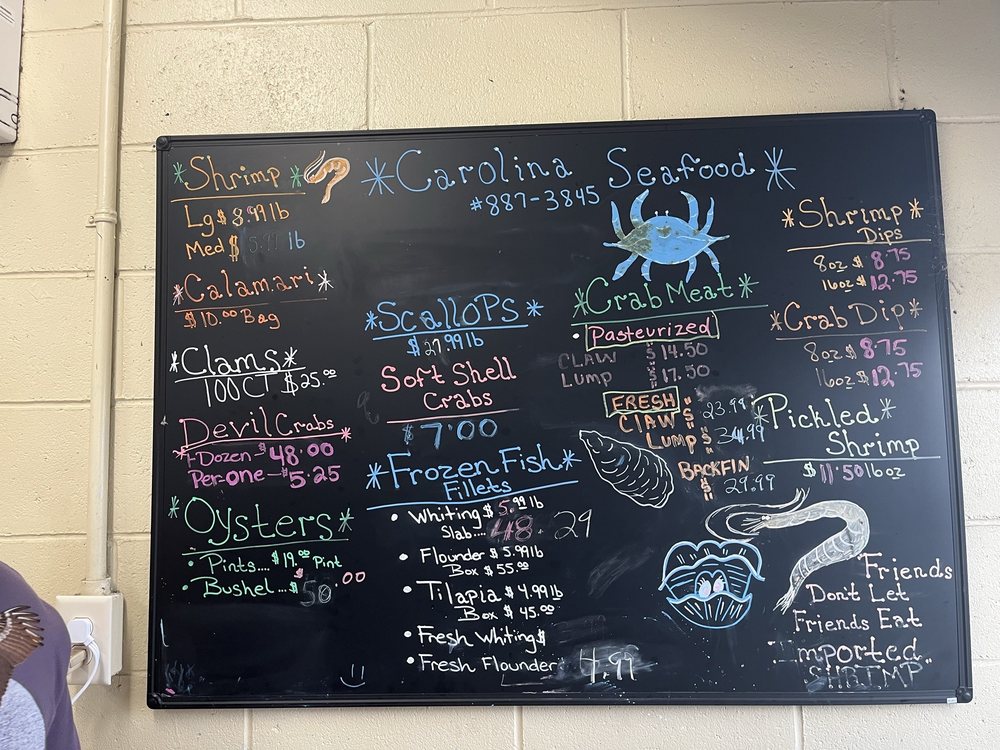 *Carolina Seafood*
#887-3845
*Shrimp*
Lg $8.99 lb
Med $5.99 lb
*Calamari*
$10.00 Bag
*Clams*
100CT $25.00
Devil Crabs
1 Dozen - $48.00
Per-one - $5.25
*Oysters*
• Pints.... $19.00 Pint
• Bushel .... $50.00
*Scallops*
$27.99 lb
Soft Shell
Crabs
$7.00
*Frozen Fish*
Fillets
• Whiting $5.99 lb
Slab.... 48.29
• Flounder $5.99 lb
Box $55.00
• Tilapia $4.99 lb
Box $45.00
• Fresh Whiting $
• Fresh Flounder 4.99
*Crab Meat*
• Pasteurized
CLAW $14.50
Lump $17.50
FRESH
Claw $23.99
Lump $34.99
BACKFIN
$29.99
*Shrimp*
Dips
8oz $8.75
16oz $12.75
*Crab Dip*
8oz $8.75
16oz $12.75
*Pickled*
Shrimp
$11.50 16oz
Friends
Don't Let
Friends Eat
Imported
"SHRIMP"